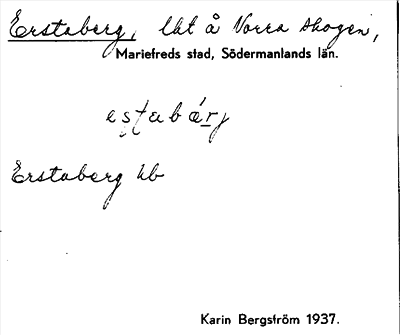 Erstaberg, lht å Norra skogen,
Mariefreds stad, Södermanlands län.
estabárj
Erstaberg hb
Karin Bergström 1937.